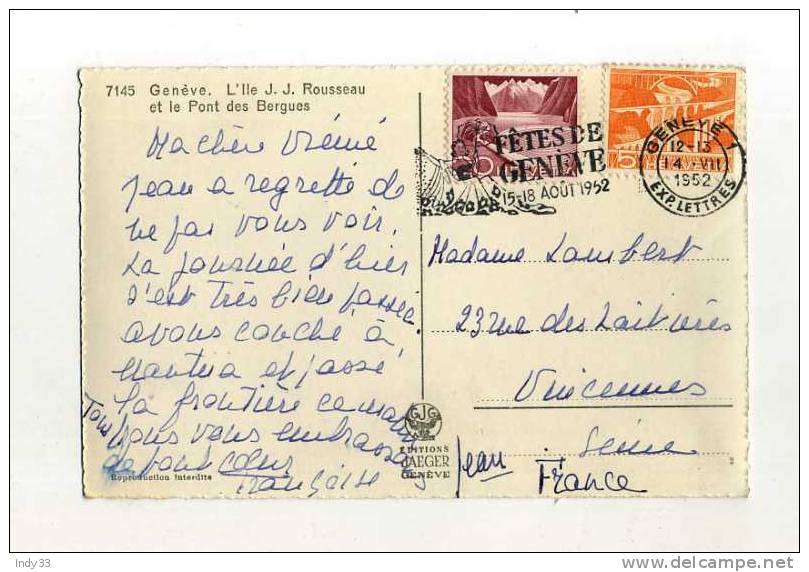 7145 Genève. L'Ile J. J. Rousseau
et le Pont des Bergues
Ma chère Mémé
Jean a regretté de
ne pas vous voir.
La journée d'hier
s'est très bien passée
avons couché à
Nantua et passé
la frontière ce matin
Tous
nous vous embrassons
de tout cœur
Françoise
Jean
Reproduction interdite
GJG
EDITIONS
JAEGER
GENÈVE
FÊTES DE
GENÈVE
15-18 AOÛT 1952
GENÈVE 1
12-13
14.VII
1952
EXP. LETTRES
Madame Lambert
23 rue des Laitières
Vincennes
Seine
France
Indy33
delcampe.net